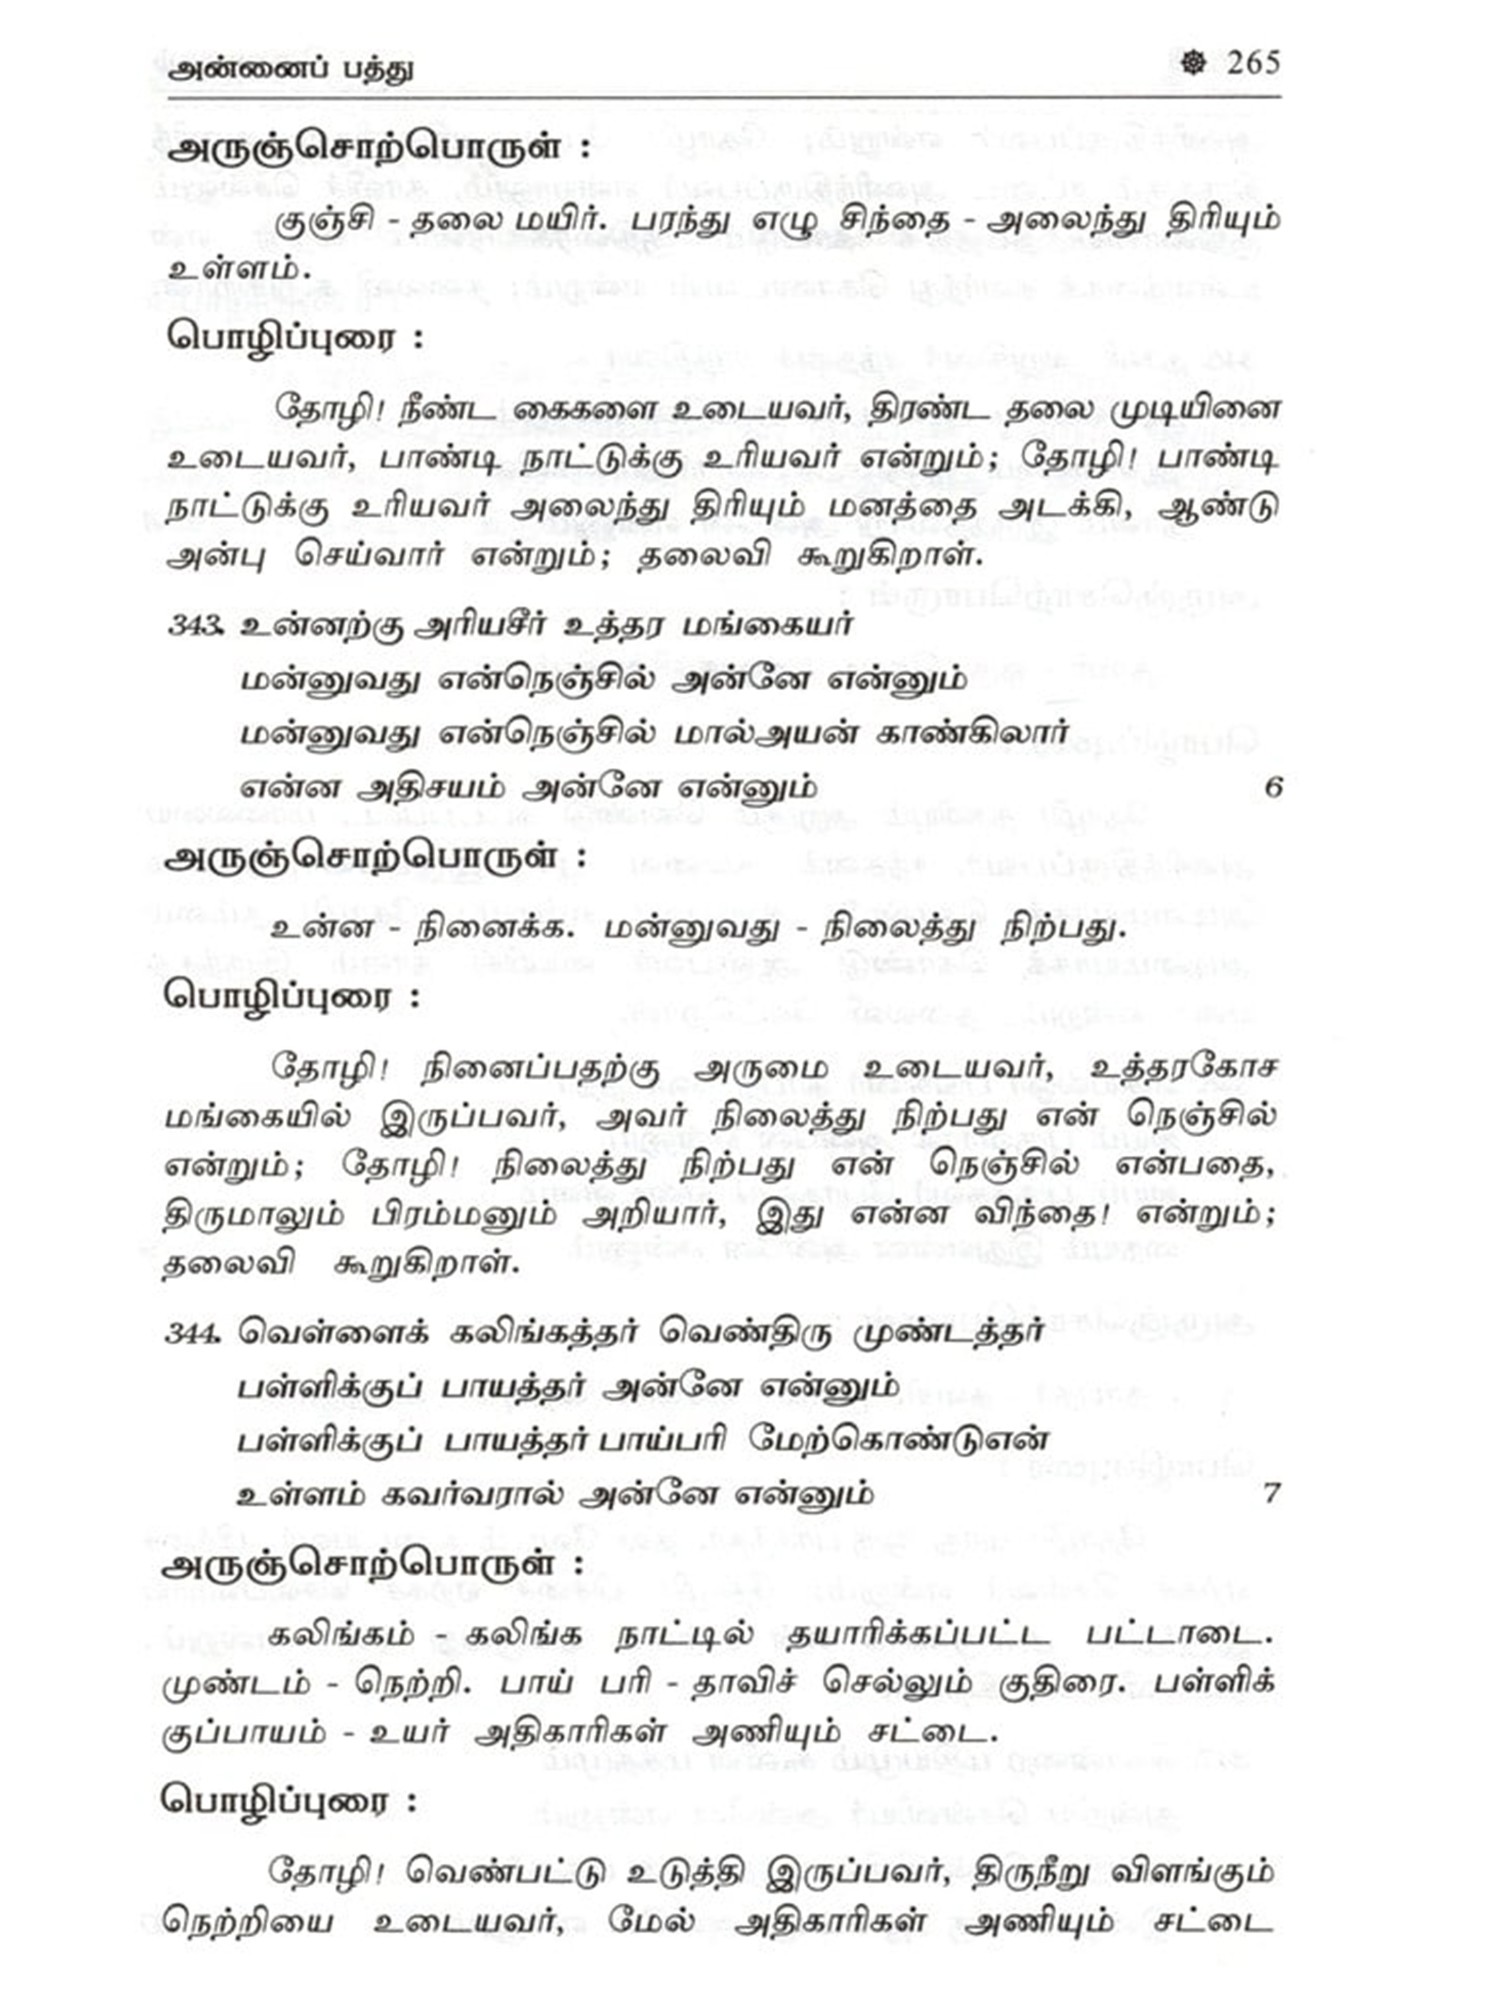 அன்னைப் பத்து 265
அருஞ்சொற்பொருள் :
குஞ்சி - தலை மயிர். பரந்து எழு சிந்தை - அலைந்து திரியும்
உள்ளம்.
பொழிப்புரை :
தோழி! நீண்ட கைகளை உடையவர், திரண்ட தலை முடியினை
உடையவர், பாண்டி நாட்டுக்கு உரியவர் என்றும்; தோழி! பாண்டி
நாட்டுக்கு உரியவர் அலைந்து திரியும் மனத்தை அடக்கி, ஆண்டு
அன்பு செய்வார் என்றும்; தலைவி கூறுகிறாள்.
343. உன்னற்கு அரியசீர் உத்தர மங்கையர்
மன்னுவது என்நெஞ்சில் அன்னே என்னும்
மன்னுவது என்நெஞ்சில் மால்அயன் காண்கிலார்
என்ன அதிசயம் அன்னே என்னும் 6
அருஞ்சொற்பொருள் :
உன்ன - நினைக்க. மன்னுவது - நிலைத்து நிற்பது.
பொழிப்புரை :
தோழி! நினைப்பதற்கு அருமை உடையவர், உத்தரகோச
மங்கையில் இருப்பவர், அவர் நிலைத்து நிற்பது என் நெஞ்சில்
என்றும்; தோழி! நிலைத்து நிற்பது என் நெஞ்சில் என்பதை,
திருமாலும் பிரம்மனும் அறியார், இது என்ன விந்தை! என்றும்;
தலைவி கூறுகிறாள்.
344. வெள்ளைக் கலிங்கத்தர் வெண்திரு முண்டத்தர்
பள்ளிக்குப் பாயத்தர் அன்னே என்னும்
பள்ளிக்குப் பாயத்தர் பாய்பரி மேற்கொண்டுஎன்
உள்ளம் கவர்வரால் அன்னே என்னும் 7
அருஞ்சொற்பொருள் :
கலிங்கம் - கலிங்க நாட்டில் தயாரிக்கப்பட்ட பட்டாடை.
முண்டம் - நெற்றி. பாய் பரி - தாவிச் செல்லும் குதிரை. பள்ளிக்
குப்பாயம் - உயர் அதிகாரிகள் அணியும் சட்டை.
பொழிப்புரை :
தோழி! வெண்பட்டு உடுத்தி இருப்பவர், திருநீறு விளங்கும்
நெற்றியை உடையவர், மேல் அதிகாரிகள் அணியும் சட்டை